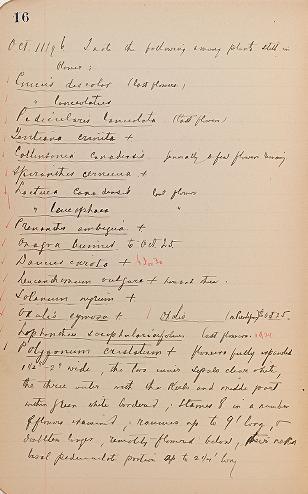 16
Oct. 11/96 I note the following among plants still in
flower;
Cnicus discolor (last flowers)
" lanceolatus
Pedicularis lanceolata (last flower)
Gentiana crinita +
Collinsonia Canadensis generally a few flowers among
Spiranthes cernua +
Lactuca Canadensis last flower
" leucophaea "
Prenanthes ambigua +
Onagra biennis to Oct. 25.
Daucus carota +
Leucanthemum vulgare +
Solanum nigrum +
Oxalis cymosa +
Lophanthus scrophulariaefolius last flowers.
Polygonum cristatum + flowers fully expanded
wide, the two inner sepals clear white,
the three outer with the keels and middle part
green white bordered; Stamens 8 in a number
of flowers examined, racemes up to 9' long, &
long, remotely flowered below, their naked
basal peduncular portion up to 2 1/4' long